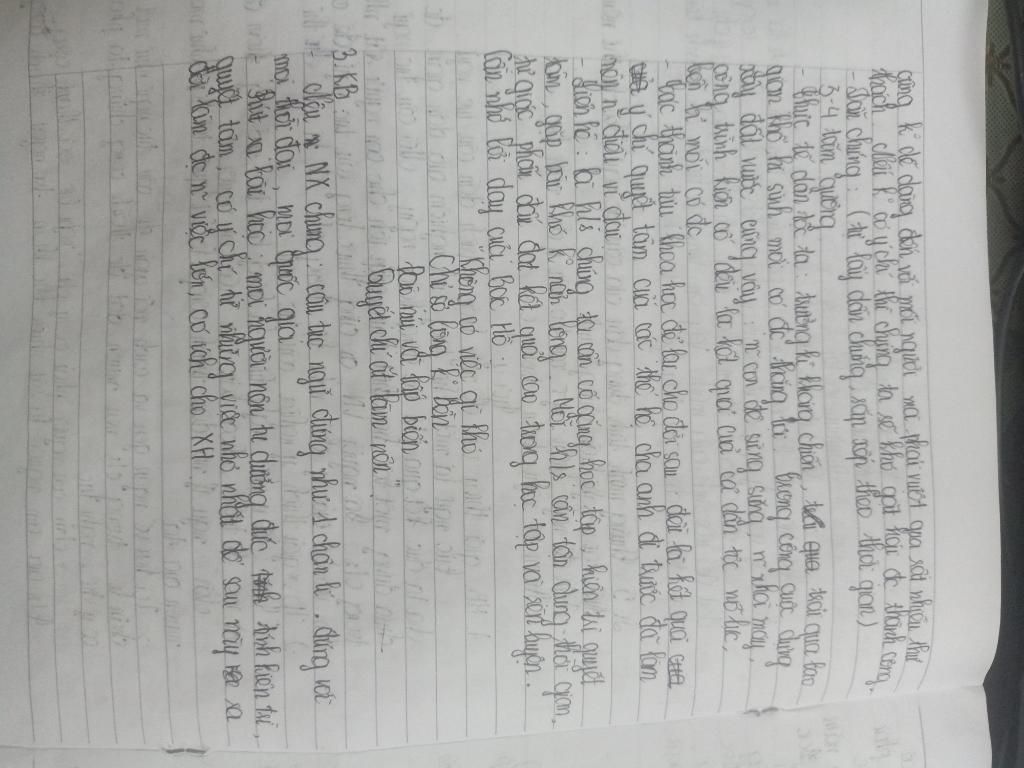 công k dễ dàng đối với mỗi người mà phải vượt qua rất nhiều thử
thách, nếu k có ý chí thì chúng ta sẽ khó gặt hái đc thành công.
- Dẫn chứng: (tự lấy dẫn chứng sắp xếp theo thời gian)
3-4 tấm gương
- Thực tế dân tộc ta: trường kì kháng chiến, trải qua bao
gian khổ hi sinh mới có đc thắng lợi. trong công cuộc dựng
xây đất nước cũng vậy: n con đê sừng sững, n nhà máy,
công trình kiến cố đều là kết quả của cả dân tộc nỗ lực,
bền bỉ mới có đc
- Các thành tựu khoa học để lại cho đời sau: đó là kết quả
ý chí quyết tâm của các thế hệ cha anh đi trước đã làm
nên n điều vĩ đại
- Liên hệ: là h/s chúng ta cần cố gắng học tập, kiên trì quyết
tâm, gặp bài khó k nản lòng. Mỗi h/s cần tận dụng thời gian,
tự giác phấn đấu đạt kết quả cao trong học tập và rèn luyện.
Cần nhớ lời dạy của Bác Hồ:
Không có việc gì khó
Chỉ sợ lòng k bền
Đào núi và lấp biển
Quyết chí ắt làm nên
3. KB:
- Nx chung: câu tục ngữ đúng như 1 chân lí, đúng với
mọi thời đại, mọi quốc gia
- Rút ra bài học: mọi người nên tu dưỡng đức tính kiên trì,
quyết tâm, có ý chí từ những việc nhỏ nhất để sau này ra
đời làm đc n việc lớn, có ích cho XH